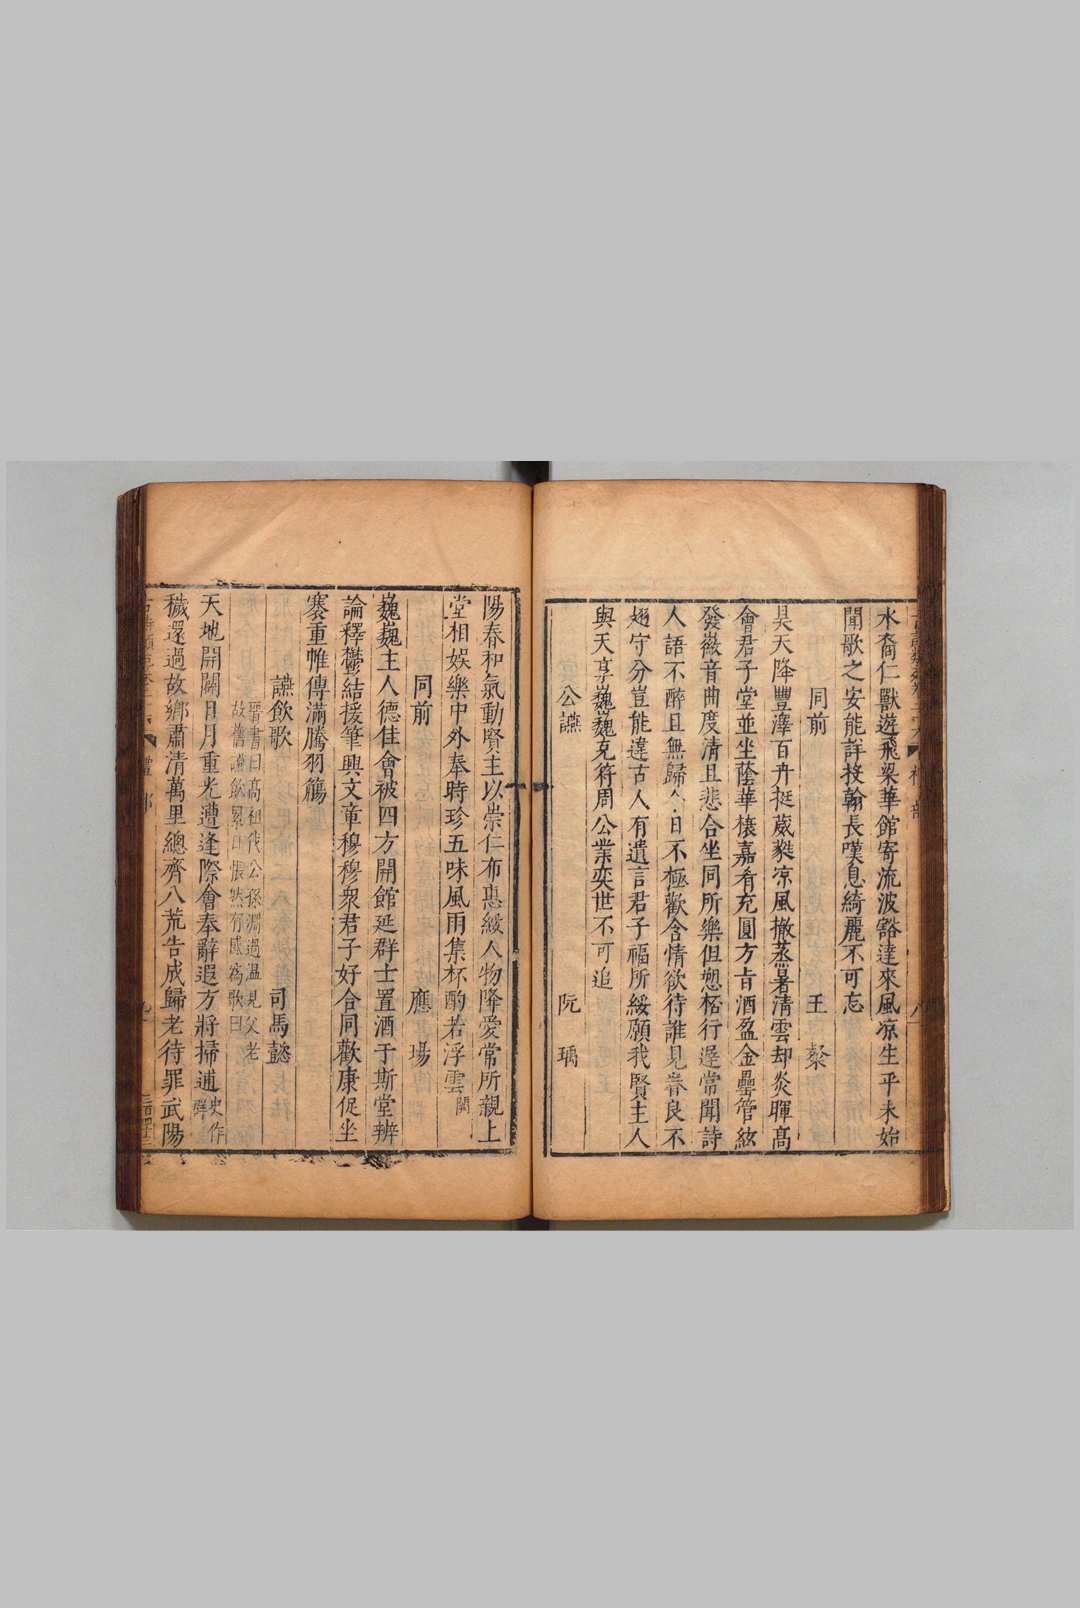 水裔仁獸遊飛梁華館寄流波豁達來風凉生平未始
聞歌之安能詳投翰長嘆息綺麗不可忘
同前 王粲
昊天降豐澤百卉挺葳蕤凉風撤蒸暑清雲却炎暉髙
會君子堂並坐蔭華榱嘉肴充圓方旨酒盈金罍管絃
發徽音曲度清且悲合坐同所樂但愬杯行遲常聞詩
人語不醉且無歸今日不極歡含情欲待誰見眷良不
翅守分豈能違古人有遺言君子福所綏願我賢主人
與天享巍巍克符周公業奕世不可追
公讌 阮瑀
陽春和氣動賢主以崇仁布惠綏人物降愛常所親上
堂相娛樂中外奉時珍五味風雨集杯酌若浮雲闕
同前 應瑒
巍巍主人德佳會被四方開館延群士置酒于斯堂辨
論釋鬱結援筆興文章穆穆衆君子好合同歡康促坐
褰重帷傳滿騰羽觴
讌飲歌 司馬懿
晉書曰髙祖伐公孫淵過温見父老
故舊讌飲累日悵然有感為歌曰
天地開闢日月重光遭逢際會奉辭遐方將掃逋史作群
穢還過故鄉肅清萬里總齊八荒告成歸老待罪武陽